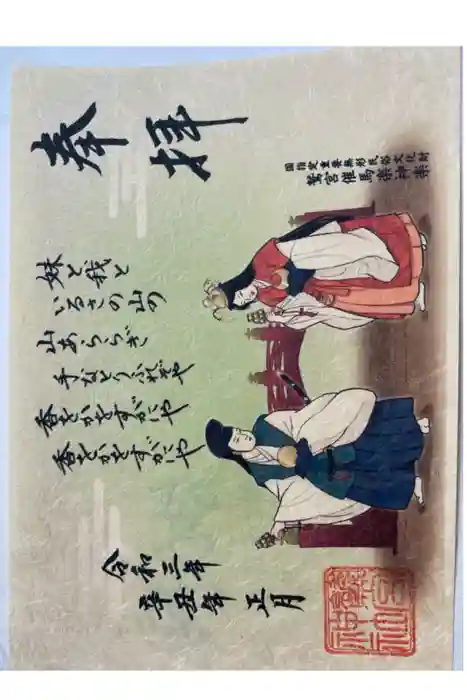 奉拝
国指定重要無形民俗文化財
鷲宮催馬楽神楽
妹と我と
いるさの山の
山あららぎ
手なとりふれぞや
香をかをずがにや
香をかをずがにや
令和三年
辛丑年 正月
鷲宮神社